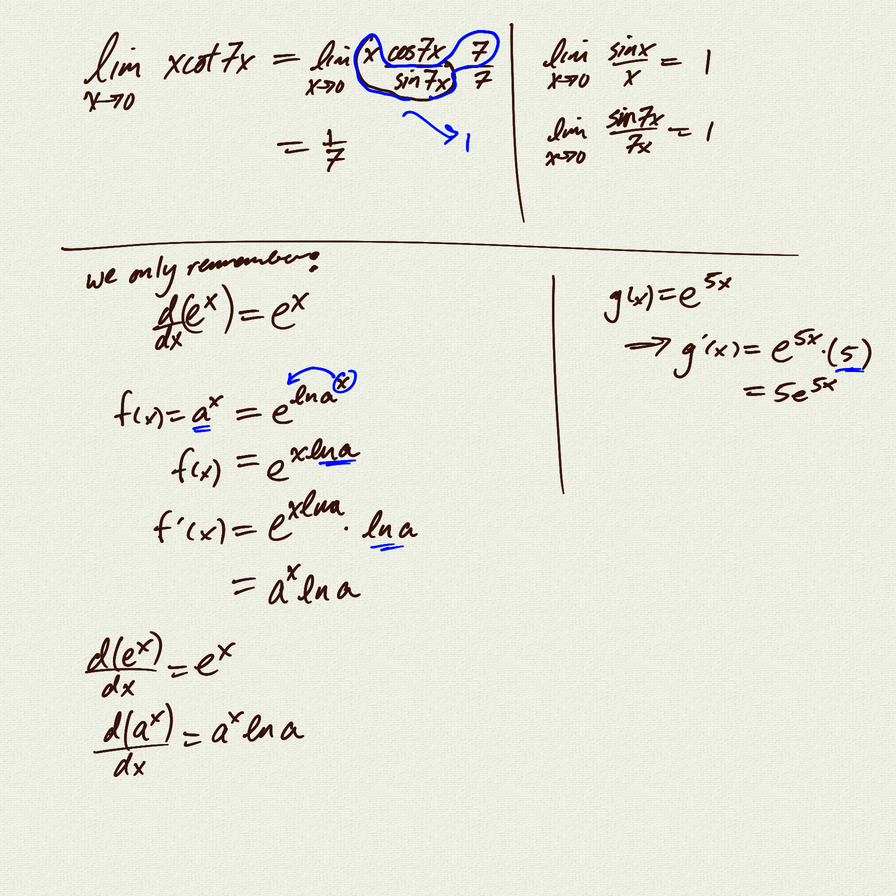 lim x→0 xcot7x = lim x→0 x cos7x/sin7x 7/7
= 1/7
1
lim x→0 sinx/x = 1
lim x→0 sin7x/7x = 1
we only remember:
d/dx(e^x) = e^x
f(x) = a^x = e^(lna^x)
f(x) = e^(x lna)
f'(x) = e^(xlna) · lna
= a^x lna
d(e^x)/dx = e^x
d(a^x)/dx = a^x lna
g(x) = e^(5x)
⇒ g'(x) = e^(5x)·(5)
= 5e^(5x)